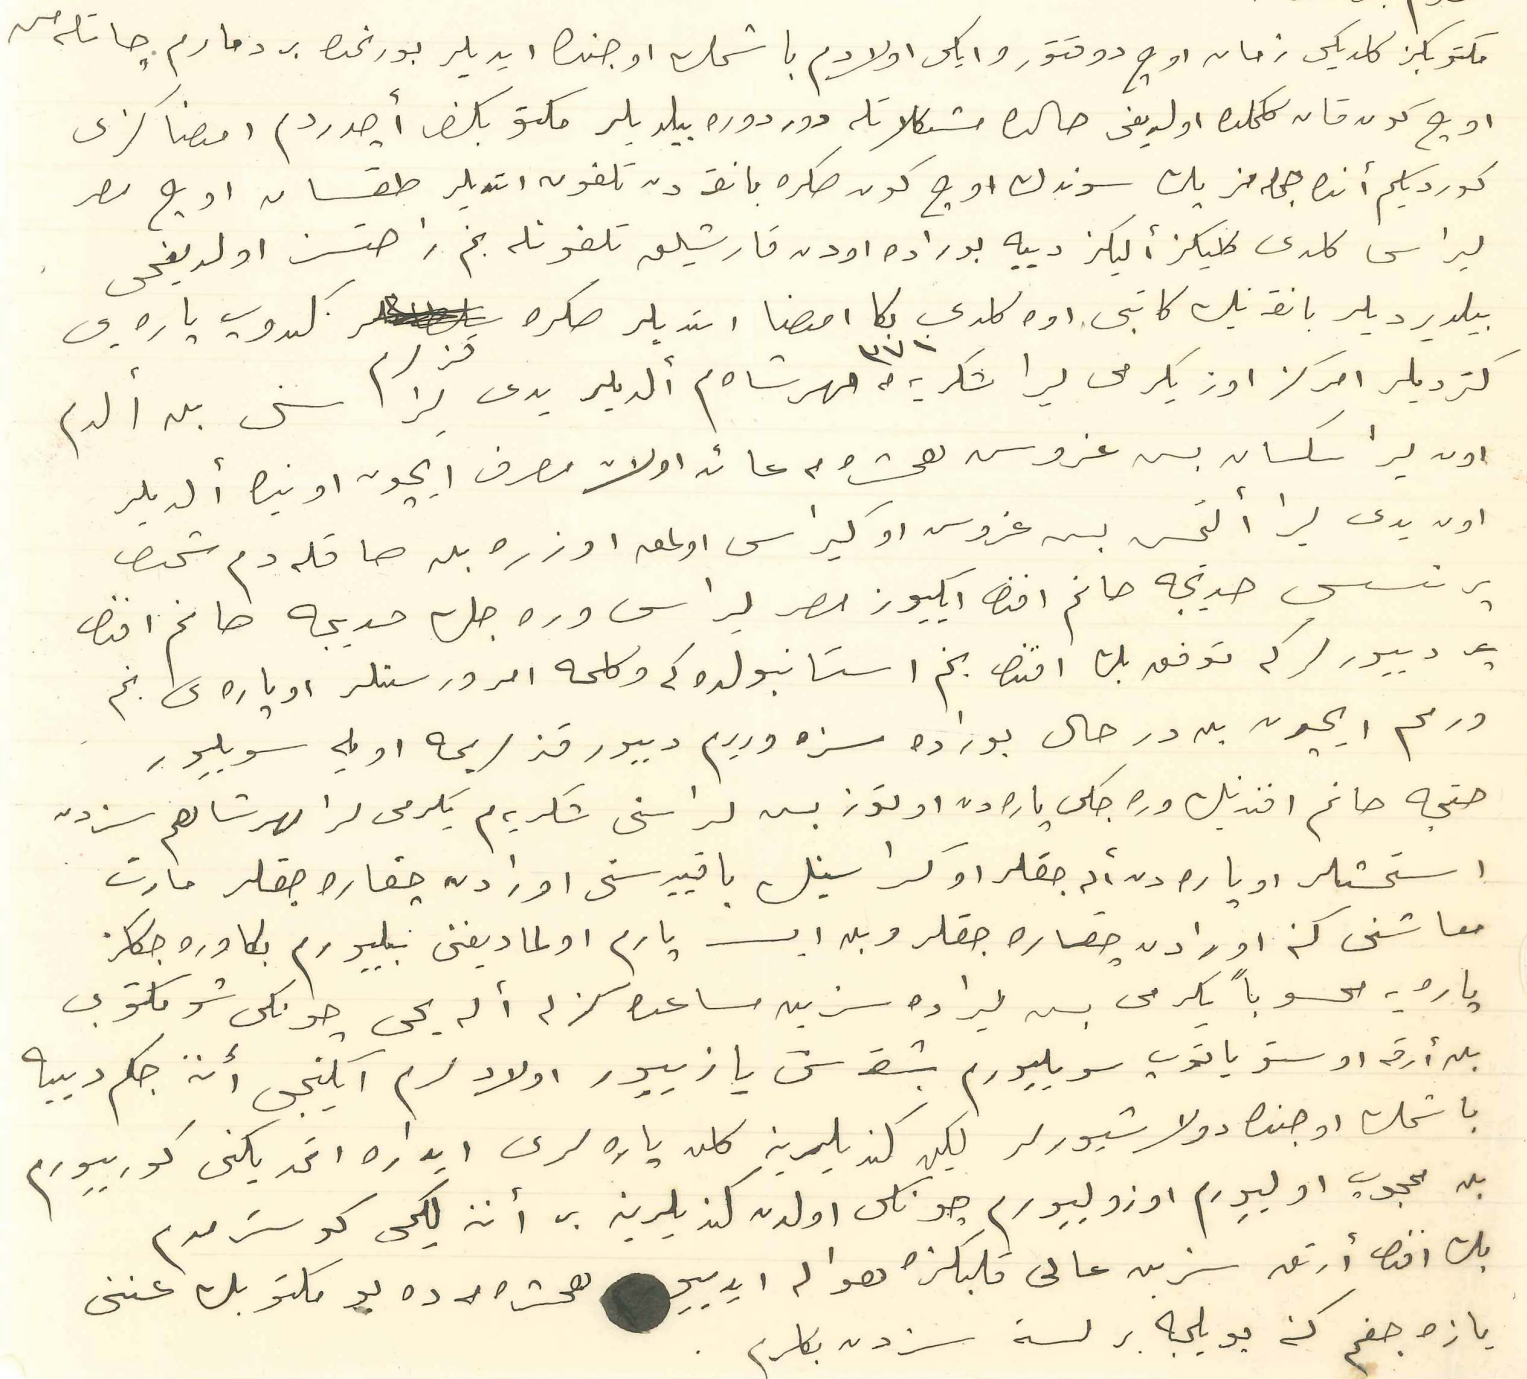 مكتوبكز كلديكى زمان اوچ دوقتور و ايكى اولادم باشمك اوجنده ايديلر بورنمده بر دمارم چاتلامش
اوچ كون قان كلمكده اولديغى حالده مشكلاتله دوردوره بيلديلر مكتوبكزى أچدردم امضاكزى
كورديكم أنده جمله مز پك سوندك اوچ كون صكره بانقه دن تلفون ايتديلر طقسان اوچ مصر
ليراسى كلدى كليكز أليكز دييه بوراده اودن قارشيلق تلفونله بنم راحتسز اولديغمى
بيلديرديلر بانقه نك كاتبى اوه كلدى بكا امضا ايتديلر صكره كيدوب پاره يى
كترديلر امركز اوزره يكرمى ليرا شكريه مه مهرشاه م ألديلر يدى ليرا سنى بن ألدم
٣٧١ قزلرم
اون ليرا سكسان بش غروش همشيره مه عائد اولان مصرف ايچون اونيده ألديلر
اون يدى ليرا ألتمش بش غروش او كيراسى اولمق اوزره بن صاقلادم شمدى
پرنسس خديجه خانم افندى ايكيوز مصر ليراسى ويره جك خديجه خانم افندى
دييورلر كه توفيق بك افندى بنم استانبولده كى وكيلمه امر ويرسينلر او پاره يى بنم
ويرمم ايچون بن درحال بوراده سزه ويريرم دييور قزلريمه اويله سويليور
خديجه خانم افندينك ويره جكى پاره دن اوتوز بش ليراسنى شكريه م يكرمى ليرا مهرشاهم سزدن
استمشلر او پاره دن أله جقلر او كيراسينك باقيه سنى اورادن چيقاره جقلر مارت
معاشنى كنه اورادن چيقاره جقلر و بن ايسه پارم اولماديغنى بيليورم بكا ويره جككز
پاره يه محسوباً يكرمى بش ليراده سزين مساعده كزله أله يم چونكى شو مكتوبى
بن أرقه اوستو ياتوب سويليورم بشقه سى يازييور اولادلرم آيكنجى أننه جكم دييه
باشمك اوجنده دولاشيورلر ليكن كنديلرينه كلن پاره لرى ايداره ايتمديكنى كورييورم
بن محجوب اولييورم اوزولييورم چونكى اولدن كنديلرينه بر أننه لكمى كوسترمدم
بك افندى أرتق سزين عالى قلبكزه حواله ايدييورم همشيره مه ده بو مكتوبك عيننى
يازه جغم كنه بويلجه بر لسته سزدن بكلرم